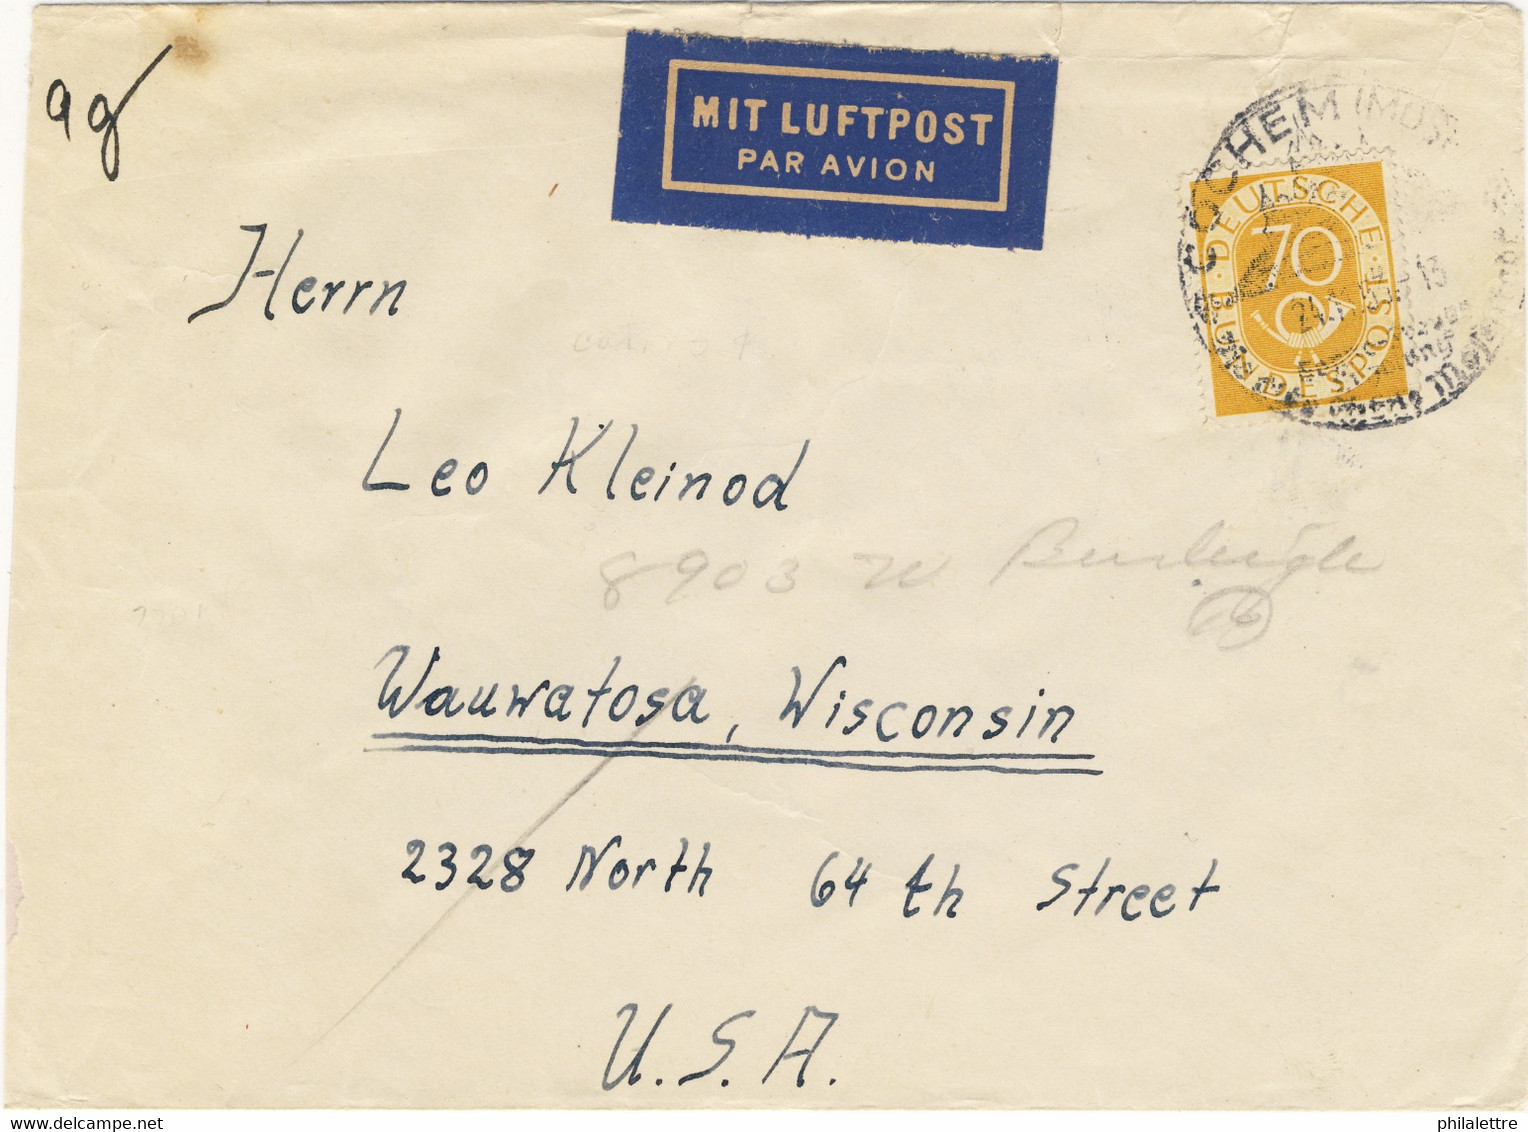 9g
MIT LUFTPOST
PAR AVION
COCHEM (MOS
DEUTSCHE BUNDESPOST
70
Herrn
Leo Kleinod
8903 W Burleigh
Wauwatosa, Wisconsin
2328 North 64 th Street
U.S.A.
philalettre